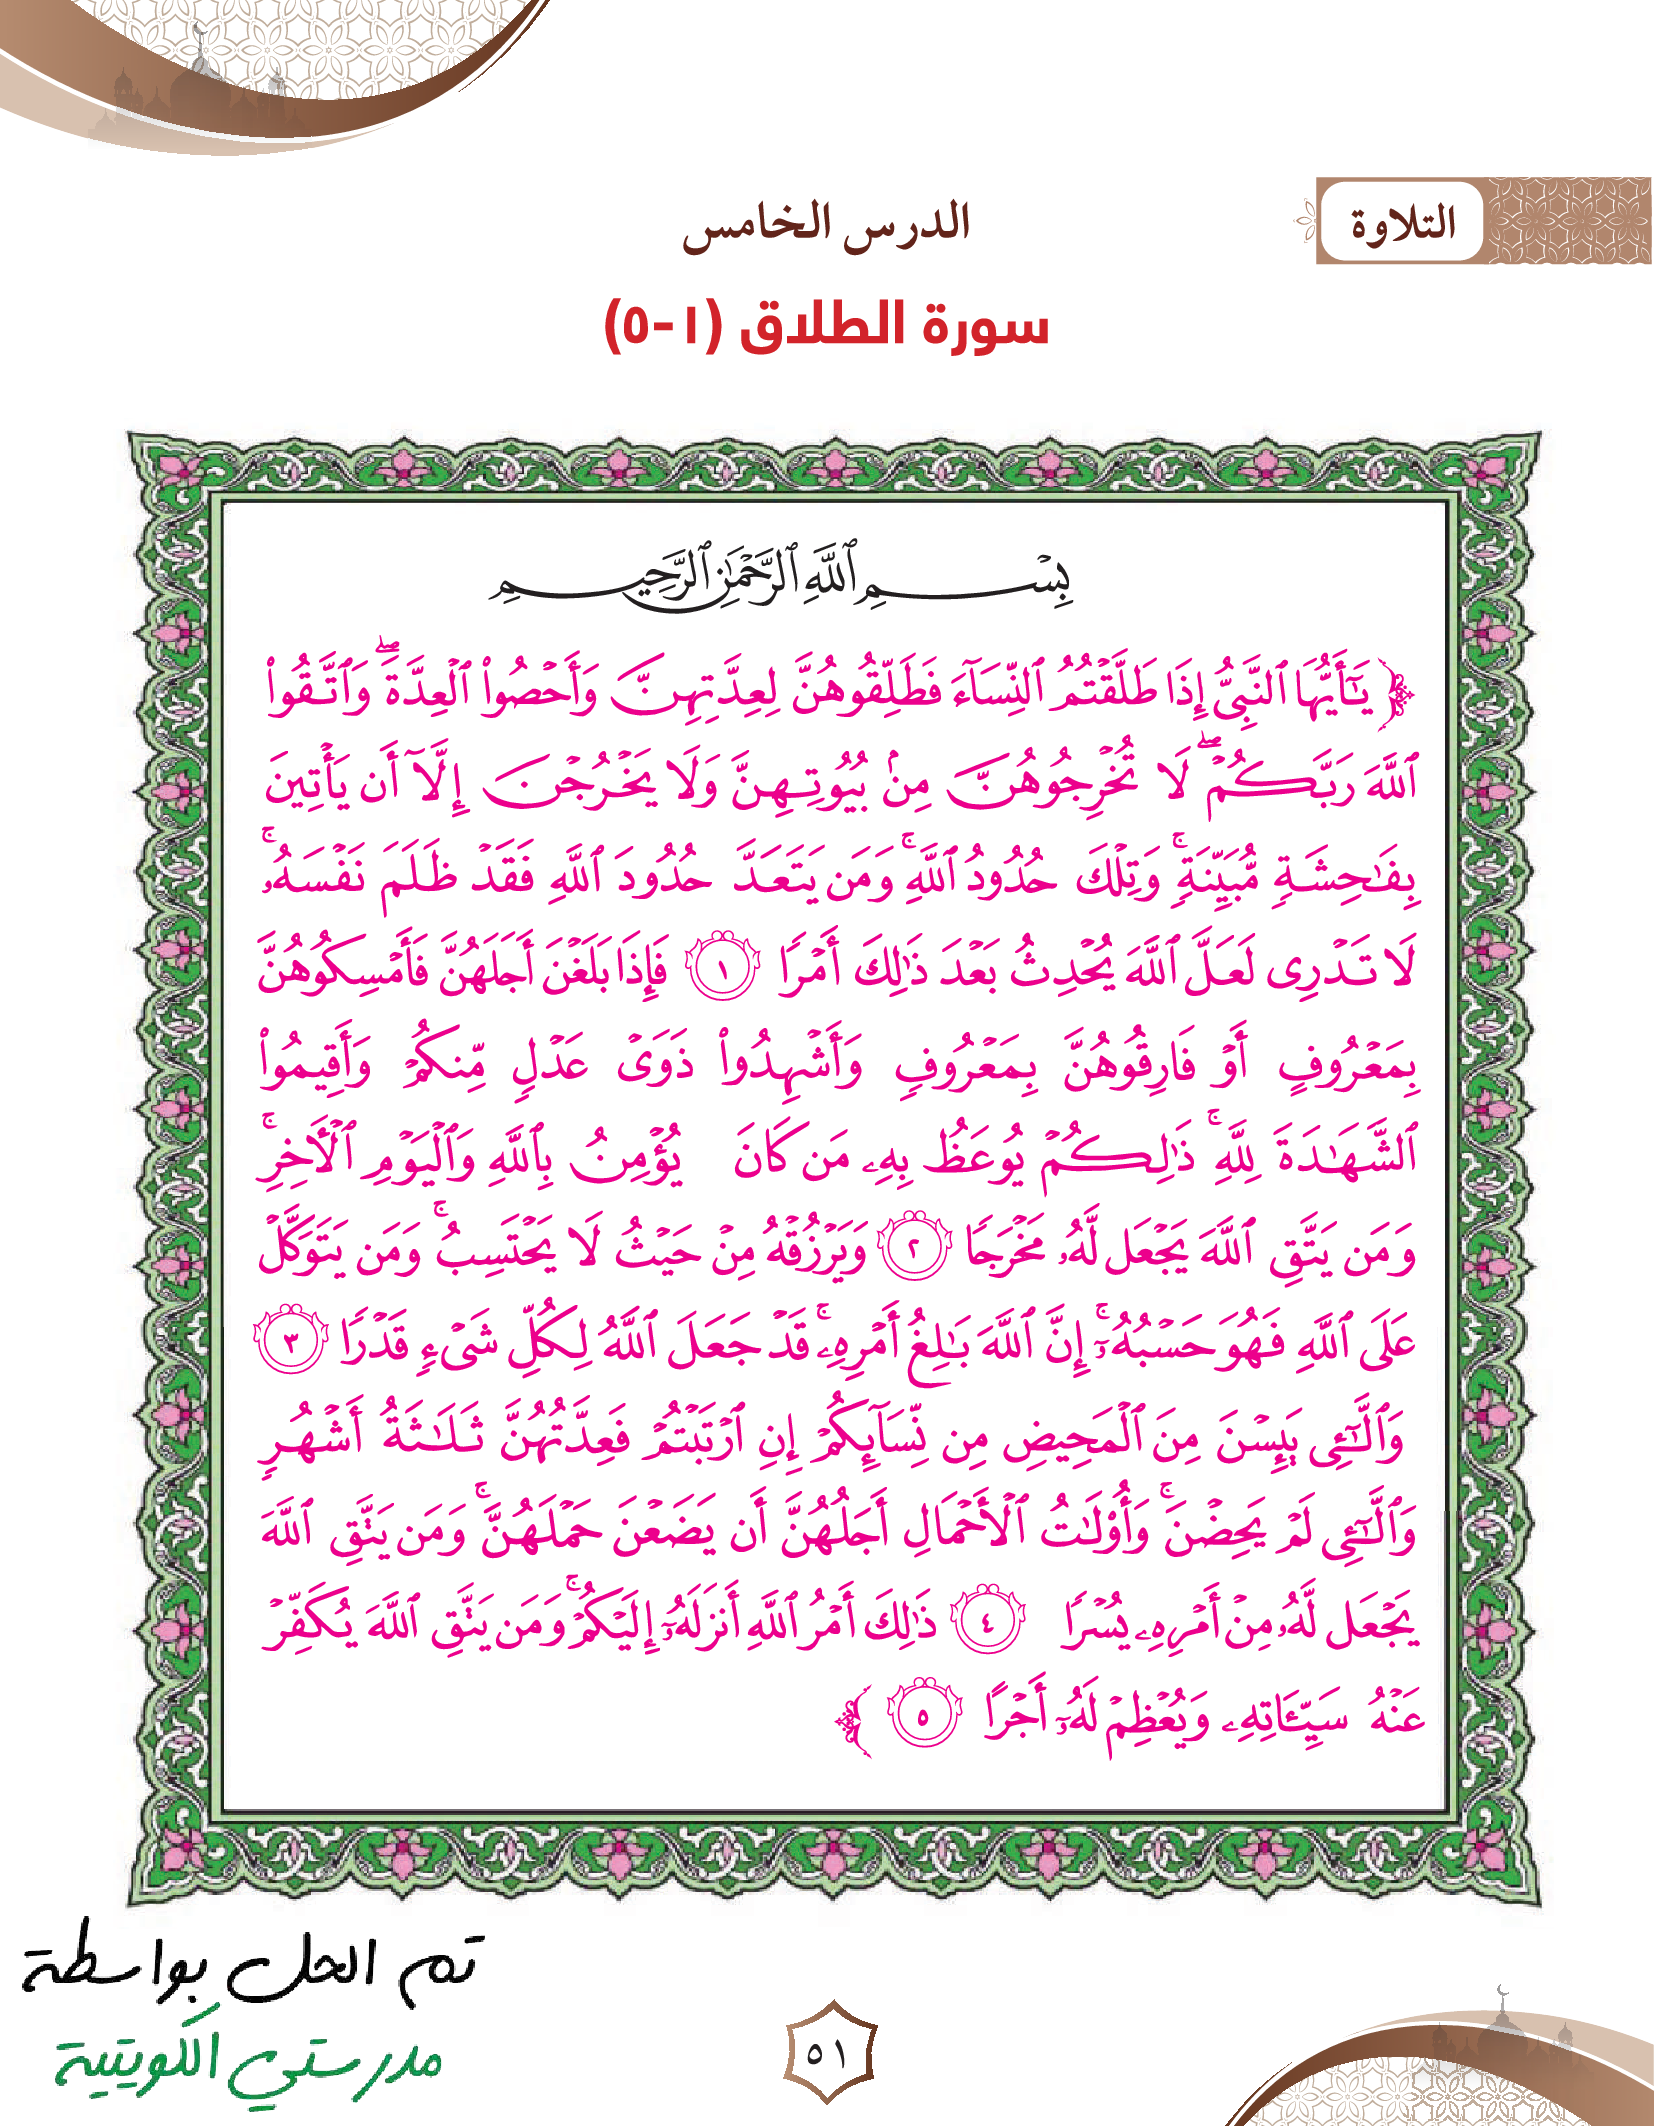 التلاوة
الدرس الخامس
سورة الطلاق (١-٥)
بِسْمِ ٱللَّهِ ٱلرَّحْمَٰنِ ٱلرَّحِيمِ
﴿ يَٰٓأَيُّهَا ٱلنَّبِىُّ إِذَا طَلَّقْتُمُ ٱلنِّسَآءَ فَطَلِّقُوهُنَّ لِعِدَّتِهِنَّ وَأَحْصُوا۟ ٱلْعِدَّةَ ۖ وَٱتَّقُوا۟
ٱللَّهَ رَبَّكُمْ ۖ لَا تُخْرِجُوهُنَّ مِنۢ بُيُوتِهِنَّ وَلَا يَخْرُجْنَ إِلَّآ أَن يَأْتِينَ
بِفَٰحِشَةٍ مُّبَيِّنَةٍ ۚ وَتِلْكَ حُدُودُ ٱللَّهِ ۚ وَمَن يَتَعَدَّ حُدُودَ ٱللَّهِ فَقَدْ ظَلَمَ نَفْسَهُۥ ۚ
لَا تَدْرِى لَعَلَّ ٱللَّهَ يُحْدِثُ بَعْدَ ذَٰلِكَ أَمْرًا ١ فَإِذَا بَلَغْنَ أَجَلَهُنَّ فَأَمْسِكُوهُنَّ
بِمَعْرُوفٍ أَوْ فَارِقُوهُنَّ بِمَعْرُوفٍ وَأَشْهِدُوا۟ ذَوَىْ عَدْلٍ مِّنكُمْ وَأَقِيمُوا۟
ٱلشَّهَٰدَةَ لِلَّهِ ۚ ذَٰلِكُمْ يُوعَظُ بِهِۦ مَن كَانَ يُؤْمِنُ بِٱللَّهِ وَٱلْيَوْمِ ٱلْءَاخِرِ ۚ
وَمَن يَتَّقِ ٱللَّهَ يَجْعَل لَّهُۥ مَخْرَجًا ٢ وَيَرْزُقْهُ مِنْ حَيْثُ لَا يَحْتَسِبُ ۚ وَمَن يَتَوَكَّلْ
عَلَى ٱللَّهِ فَهُوَ حَسْبُهُۥٓ ۚ إِنَّ ٱللَّهَ بَٰلِغُ أَمْرِهِۦ ۚ قَدْ جَعَلَ ٱللَّهُ لِكُلِّ شَىْءٍ قَدْرًا ٣
وَٱلَّٰٓـِٔى يَئِسْنَ مِنَ ٱلْمَحِيضِ مِن نِّسَآئِكُمْ إِنِ ٱرْتَبْتُمْ فَعِدَّتُهُنَّ ثَلَٰثَةُ أَشْهُرٍ
وَٱلَّٰٓـِٔى لَمْ يَحِضْنَ ۚ وَأُو۟لَٰتُ ٱلْأَحْمَالِ أَجَلُهُنَّ أَن يَضَعْنَ حَمْلَهُنَّ ۚ وَمَن يَتَّقِ ٱللَّهَ
يَجْعَل لَّهُۥ مِنْ أَمْرِهِۦ يُسْرًا ٤ ذَٰلِكَ أَمْرُ ٱللَّهِ أَنزَلَهُۥٓ إِلَيْكُمْ ۚ وَمَن يَتَّقِ ٱللَّهَ يُكَفِّرْ
عَنْهُ سَيِّـَٔاتِهِۦ وَيُعْظِمْ لَهُۥٓ أَجْرًا ٥ ﴾
تم الحل بواسطة
مدرستي الكويتية
٥١